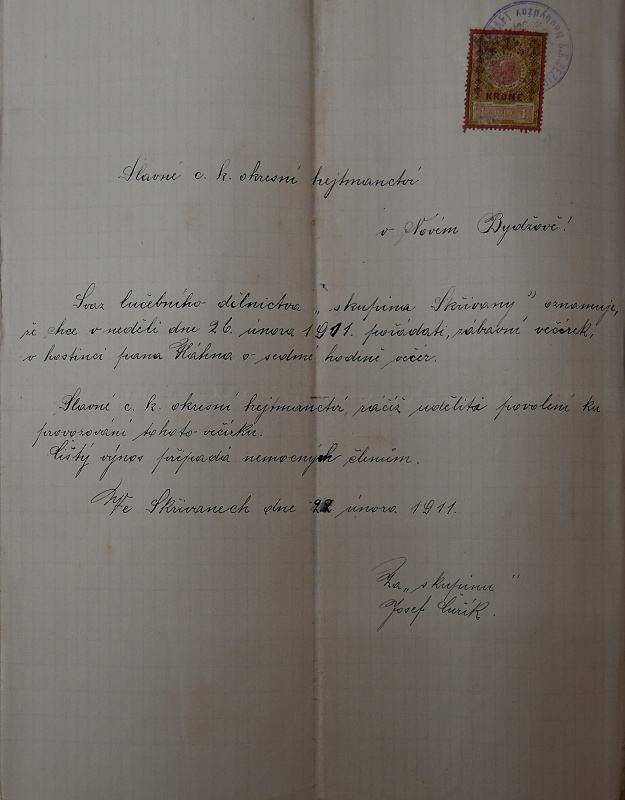 KRONE
1
Slavné c. k. okresní hejtmanctví
v Novém Bydžově!
Svaz lučebního dělnictva „skupina Skřivany" oznamuje,
že chce v neděli dne 26. února 1911. pořádati „zábavní večírek,
v hostinci pana Hláhna o sedmé hodině večer.
Slavné c. k. okresní hejtmanctví, račiž uděliti povolení ku
provozování tohoto večírku.
Čistý výnos připadá nemocných členům.
Ve Skřivanech dne 22. února 1911.
Za „skupinu"
Josef Čuřík.